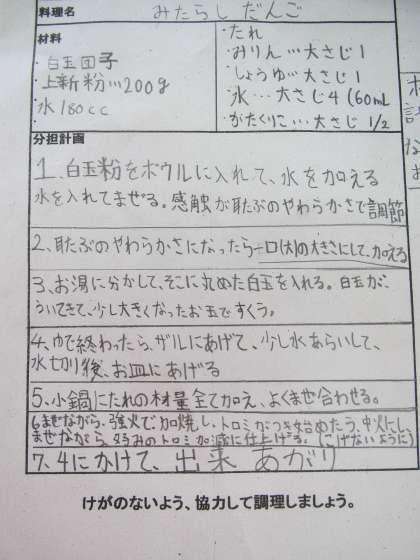 料理名 みたらしだんご
材料
・白玉団子
・上新粉…200g
・水 180cc
・たれ
・みりん…大さじ1
・しょうゆ…大さじ1
・水…大さじ4(60mL
・かたくりこ…大さじ1/2
分担計画
1、白玉粉をボウルに入れて、水を加える
水を入れてまぜる。感触が耳たぶのやわらかさで調節
2、耳たぶのやわらかさになったら一口(大)の大きさにして、加える
3、お湯に分かして、そこに丸めた白玉を入れる。白玉が
ういてきて、少し大きくなったお玉ですくう。
4、ゆで終わったら、ザルにあげて、少し水あらいして、
水切り後、お皿にあげる
5、小鍋にたれの材量全て加え、よくまぜ合わせる。
6まぜながら、強火で加焼し、トロミがつき始めたら、中火にし
まぜながら、好みのトロミ加減に仕上げる。(こげないように)
7、4にかけて、出来あがり
けがのないよう、協力して調理しましょう。